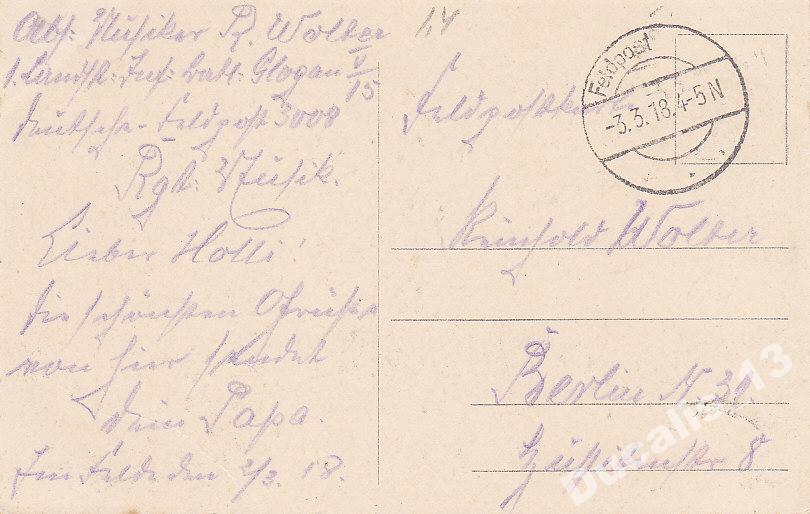 Abs: Musiker R. Wolter
1. Landst: Inf: Batl: Glogau V/15
Deutsche-Feldpost 3008
Rgt: Musik.
Lieber Holli!
die schönsten Grüße
von hier sendet
dein Papa.
Im Felde den 2/3. 18.
14
Feldpostkarte
Feldpost
-3.3.18.4-5N
Reinhold Wolter
Berlin N 31.
8
Ducalis_13